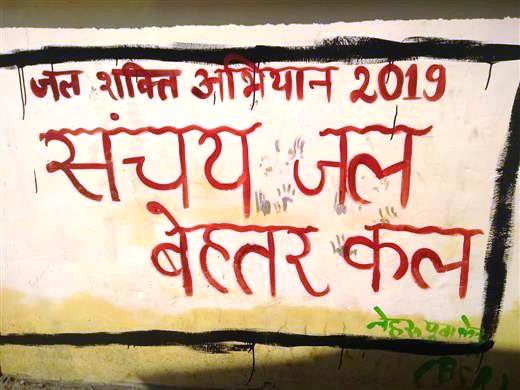 जल शक्ति अभियान 2019
संचय जल
बेहतर कल
नेहरू युवा केन्